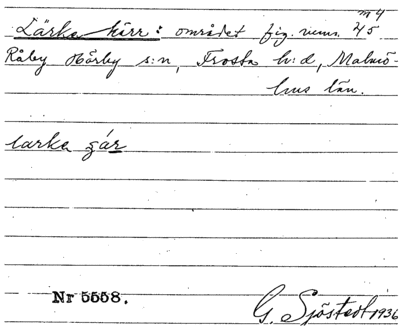 m 4
Lärka kärr: området fig. num. 45.
Råby Hörby s:n, Frosta h:d, Malmö-
hus län.
larka ʒár
Nr 5558.
G. Sjöstedt 1936